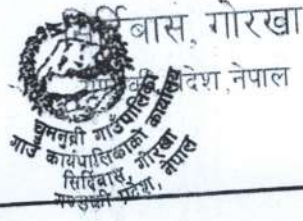 र्दिबास, गोरखा
प्रदेश, नेपाल
चुमनुव्री गाउँपालिका
गाउँ कार्यपालिकाको कार्यालय
सिर्दिबास, गोरखा
गण्डकी प्रदेश, नेपाल